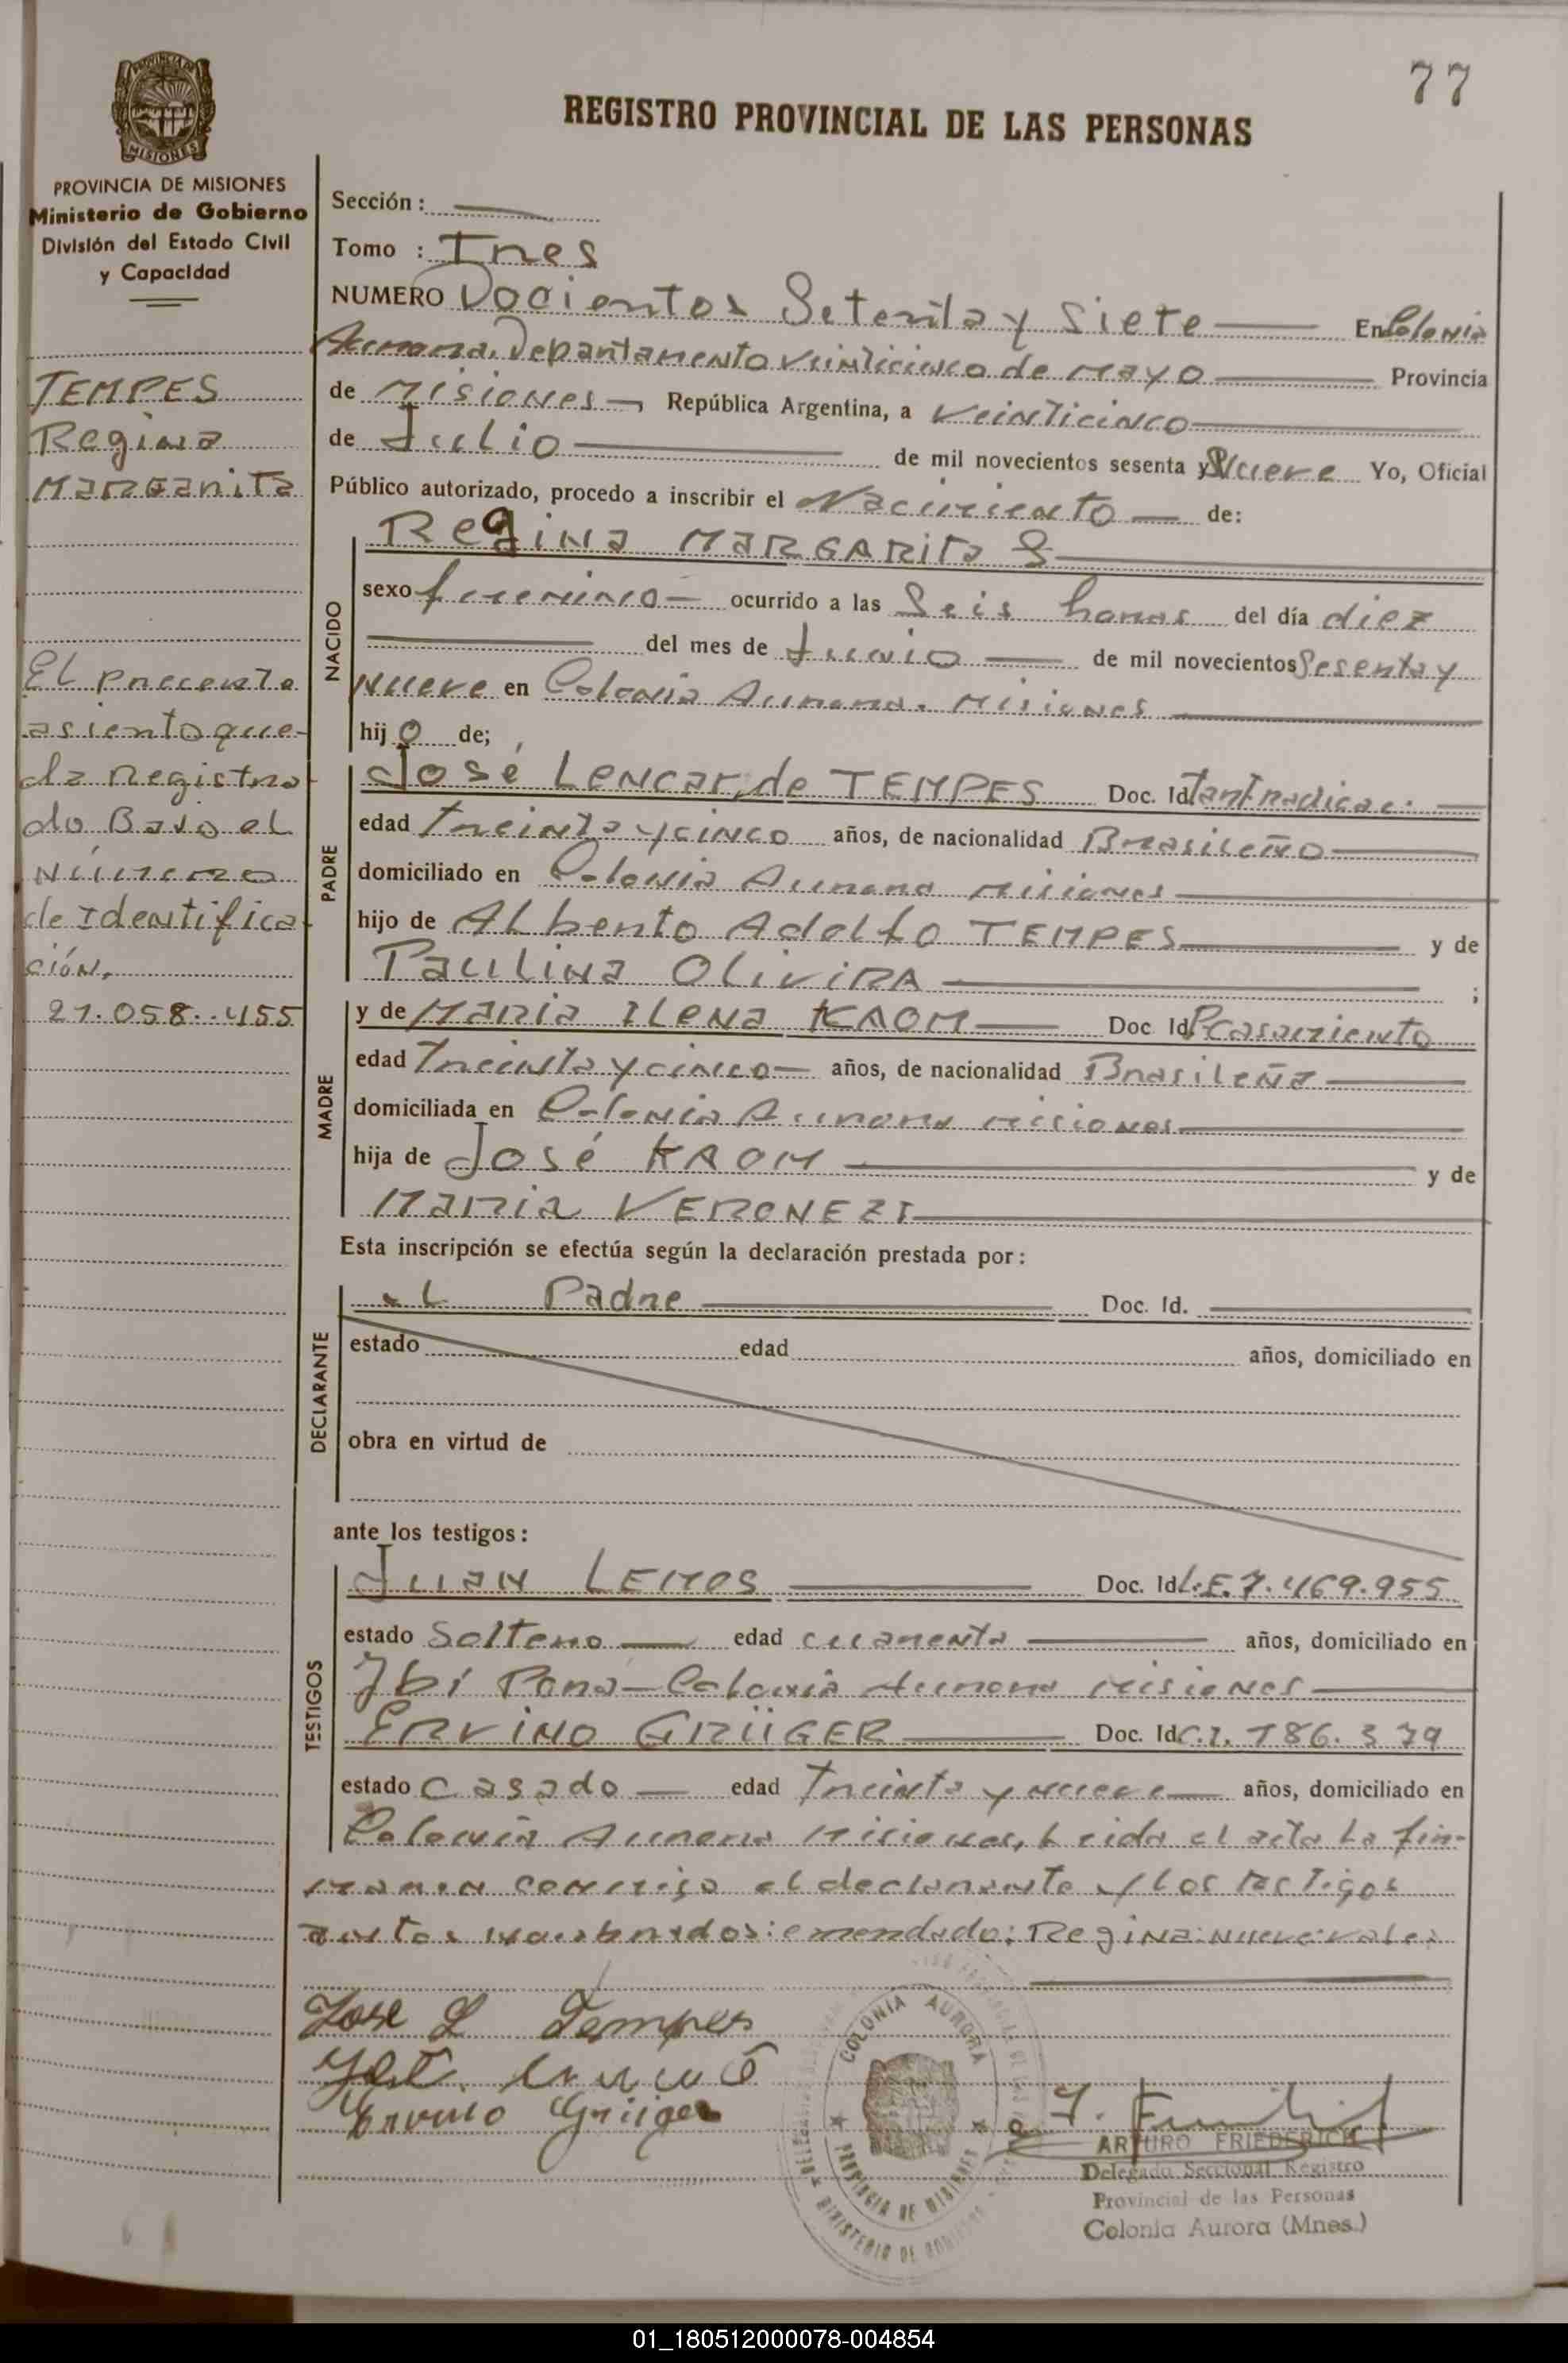 77
REGISTRO PROVINCIAL DE LAS PERSONAS
MISIONES
PROVINCIA DE MISIONES
Ministerio de Gobierno
División del Estado Civil
y Capacidad
TEMPES
Regina
Margarita
El precente
asiento que-
da Registra
do Bajo el
Número
de Identifica
ción.
21.058.455
Sección :
Tomo : Tres
NUMERO Docientos Setenta y Siete En Colonia
Aurora, Departamento Veinticinco de Mayo Provincia
de Misiones República Argentina, a Veinticinco
de Julio de mil novecientos sesenta y Nueve Yo, Oficial
Público autorizado, procedo a inscribir el Nacimiento de:
NACIDO
Regina MARGARITA
sexo femenino ocurrido a las Seis horas del día diez
del mes de Junio de mil novecientos Sesenta y
Nueve en Colonia Aurora. Misiones
hijo de;
PADRE
José Lencar de TEMPES Doc. Id
edad Treinta y cinco años, de nacionalidad Brasileño
domiciliado en Colonia Aurora Misiones
hijo de Alberto Adolfo TEMPES y de
Paulina OliviRA ;
MADRE
y de Maria Ilena KAOM Doc Id P.Casamiento
edad Treinta y cinco años, de nacionalidad Brasileña
domiciliada en Colonia Aurora Misiones
hija de José KAOM y de
Maria VERONEZI
Esta inscripción se efectúa según la declaración prestada por :
DECLARANTE
el Padre Doc. Id.
estado edad años, domiciliado en
obra en virtud de
ante los testigos :
TESTIGOS
Juan LEMOS Doc. Id L.E.7.469.955
estado Soltero edad cuarenta años, domiciliado en
Colonia Aurora Misiones
ERVINO GRÜGER Doc. Id C.I. 186.379
estado Casado edad Treinta y nueve años, domiciliado en
Colonia Aurora Misiones, Leida el acta La fir-
maron conmigo el declarante y los testigos
antes nombrados: emendado: Regina: Nueve: vale:
Jose L Tempes
Ervino Grüger
COLONIA AURORA
PROVINCIA DE MISIONES
MINISTERIO DE GOBIERNO
ARTURO FRIEDERICH
Delegado Seccional Registro
Provincial de las Personas
Colonia Aurora (Mnes.)
01_180512000078-004854